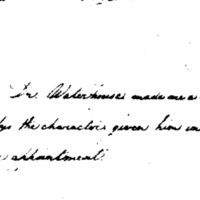 Dr. Waterhouse made me a
the charactors given him in
appointment.